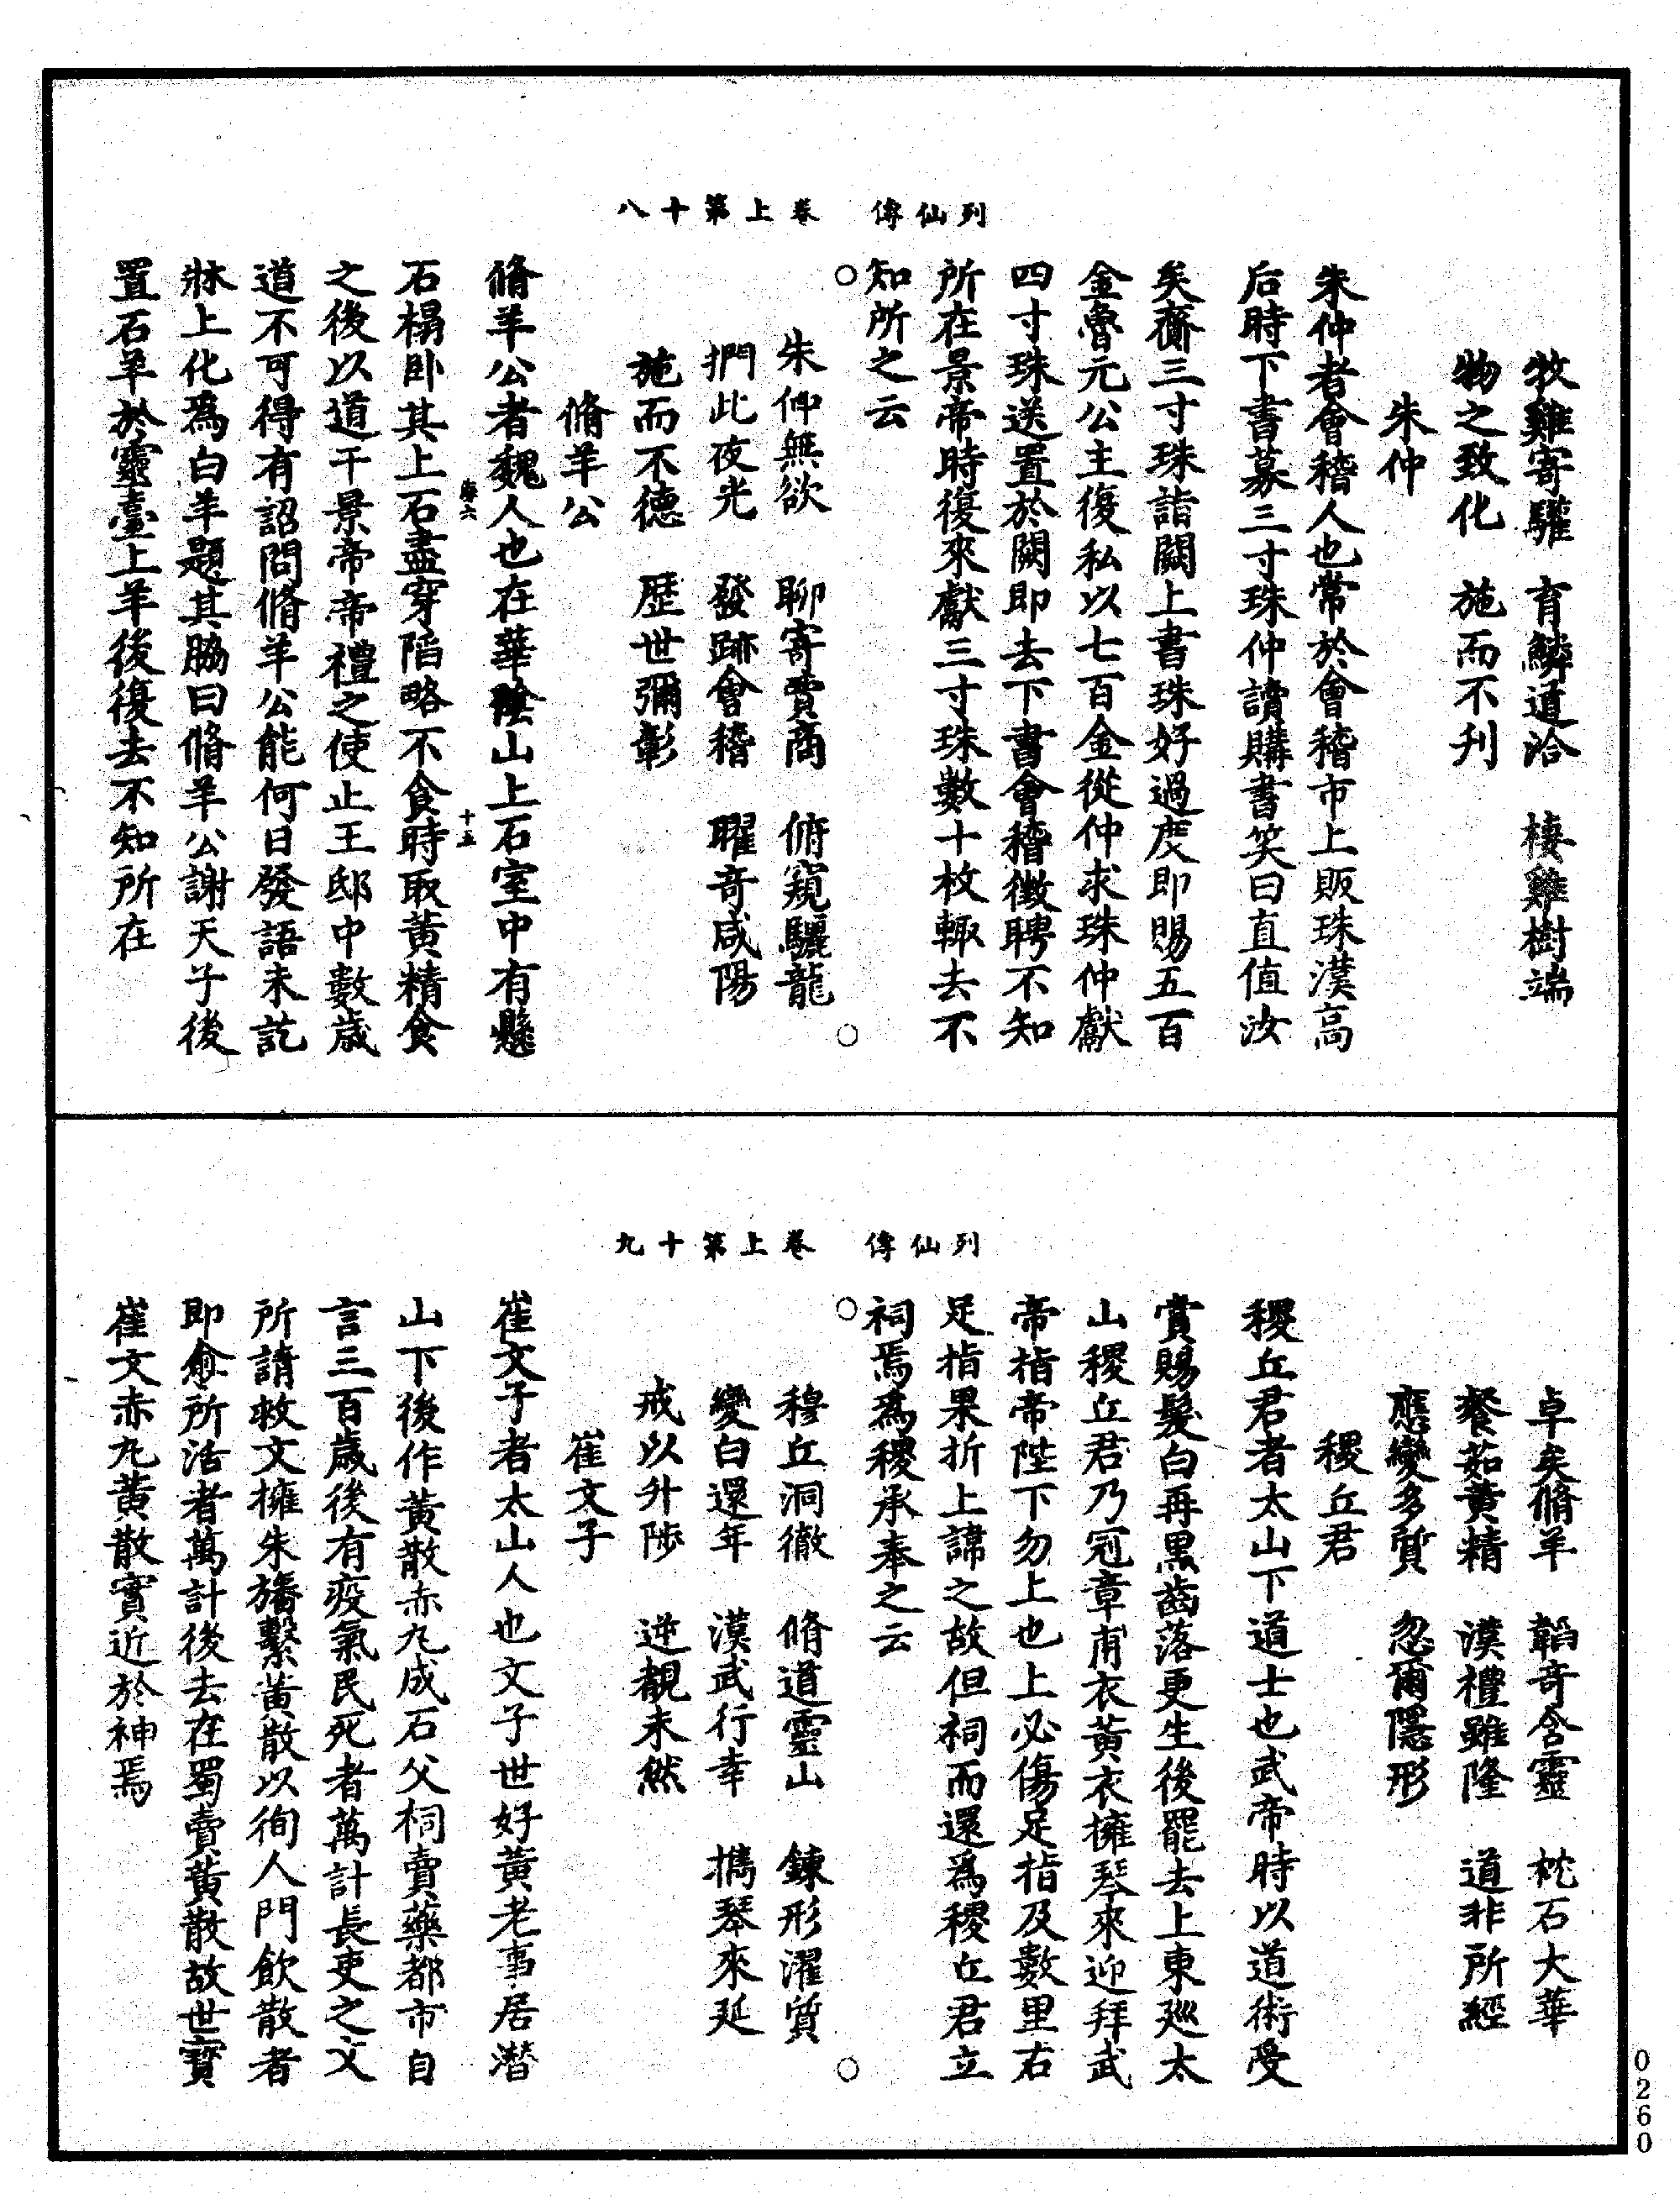 列仙傳　卷上第十八
牧雞寄驩　育鱗道洽　棲雞樹端
物之致化　施而不刋
朱仲
朱仲者會稽人也常於會稽市上販珠漢髙
后時下書募三寸珠仲讀購書笑曰直值汝
矣齎三寸珠詣闕上書珠好過度即賜五百
金魯元公主復私以七百金從仲求珠仲獻
四寸珠送置於闕即去下書會稽徵聘不知
所在景帝時復來獻三寸珠數十枚輙去不
知所之云
朱仲無欲　聊寄賈商　俯窺驪龍
捫此夜光　發跡會稽　曜奇咸陽
施而不德　歷世彌彰
脩羊公
脩羊公者魏人也在華陰山上石室中有懸
海六　十五
石榻卧其上石盡穿陷略不食時取黃精食
之後以道干景帝帝禮之使止王邸中數歲
道不可得有詔問脩羊公能何日發語未訖
牀上化爲白羊題其脇曰脩羊公謝天子後
置石羊於靈臺上羊後復去不知所在
列仙傳　卷上第十九
卓矣脩羊　韜奇含靈　枕石大華
餐茹黃精　漢禮雖隆　道非所經
應變多質　忽爾隱形
稷丘君
稷丘君者太山下道士也武帝時以道術受
賞賜髮白再黑齒落更生後罷去上東廵太
山稷丘君乃冠章甫衣黃衣擁琴來迎拜武
帝指帝陛下勿上也上必傷足指及數里右
足指果折上諱之故但祠而還爲稷丘君立
祠焉爲稷承奉之云
穆丘洞徹　脩道靈山　鍊形濯質
變白還年　漢武行幸　攜琴來延
戒以升陟　逆覩未然
崔文子
崔文子者太山人也文子世好黃老事居潛
山下後作黃散赤丸成石父祠賣藥都市自
言三百歲後有疫氣民死者萬計長吏之文
所請救文擁朱旛繫黃散以徇人門飲散者
即愈所活者萬計後去在蜀賣黃散故世寳
崔文赤丸黃散實近於神焉
0260